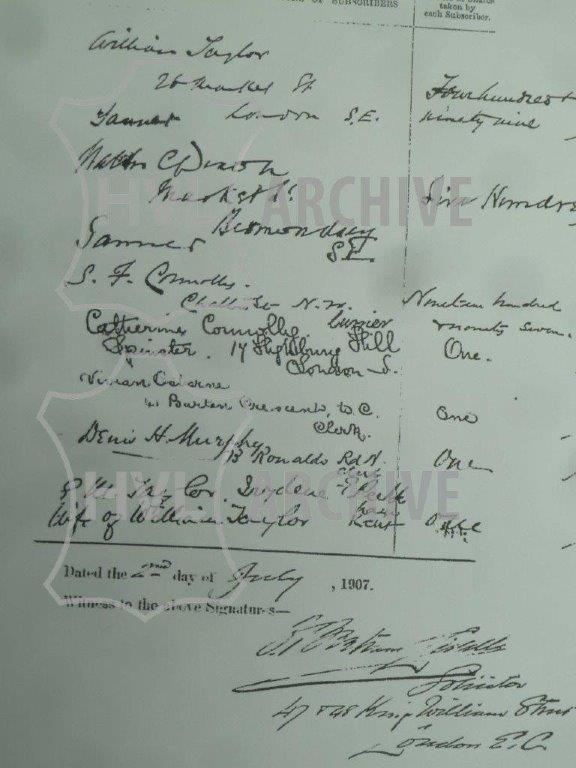 OF SUBSCRIBERS
taken by
each Subscriber.
William Taylor
26 Market St
Tanner London S.E.
Four hundred &
ninety nine
HYL ARCHIVE
Market St
Five Hundred
Bermondsey
Tanner S.E.
S. F. Connolly.
N.W.
Currier
Nineteen hundred
& ninety seven.
Catherine Connolly.
Spinster. 17 Highbury Hill
London N.
One.
Vivian Osborne
41 Burton Crescent, W.C.
Clerk.
One
Denis H. Murphy
13 Ronalds Rd N.
One
HYL ARCHIVE
Taylor
Wife of William Taylor Kent
One
Dated the 2nd day of July , 1907.
Witness to the above Signatures—
Solicitor
47 & 48 King William Street
London E.C.